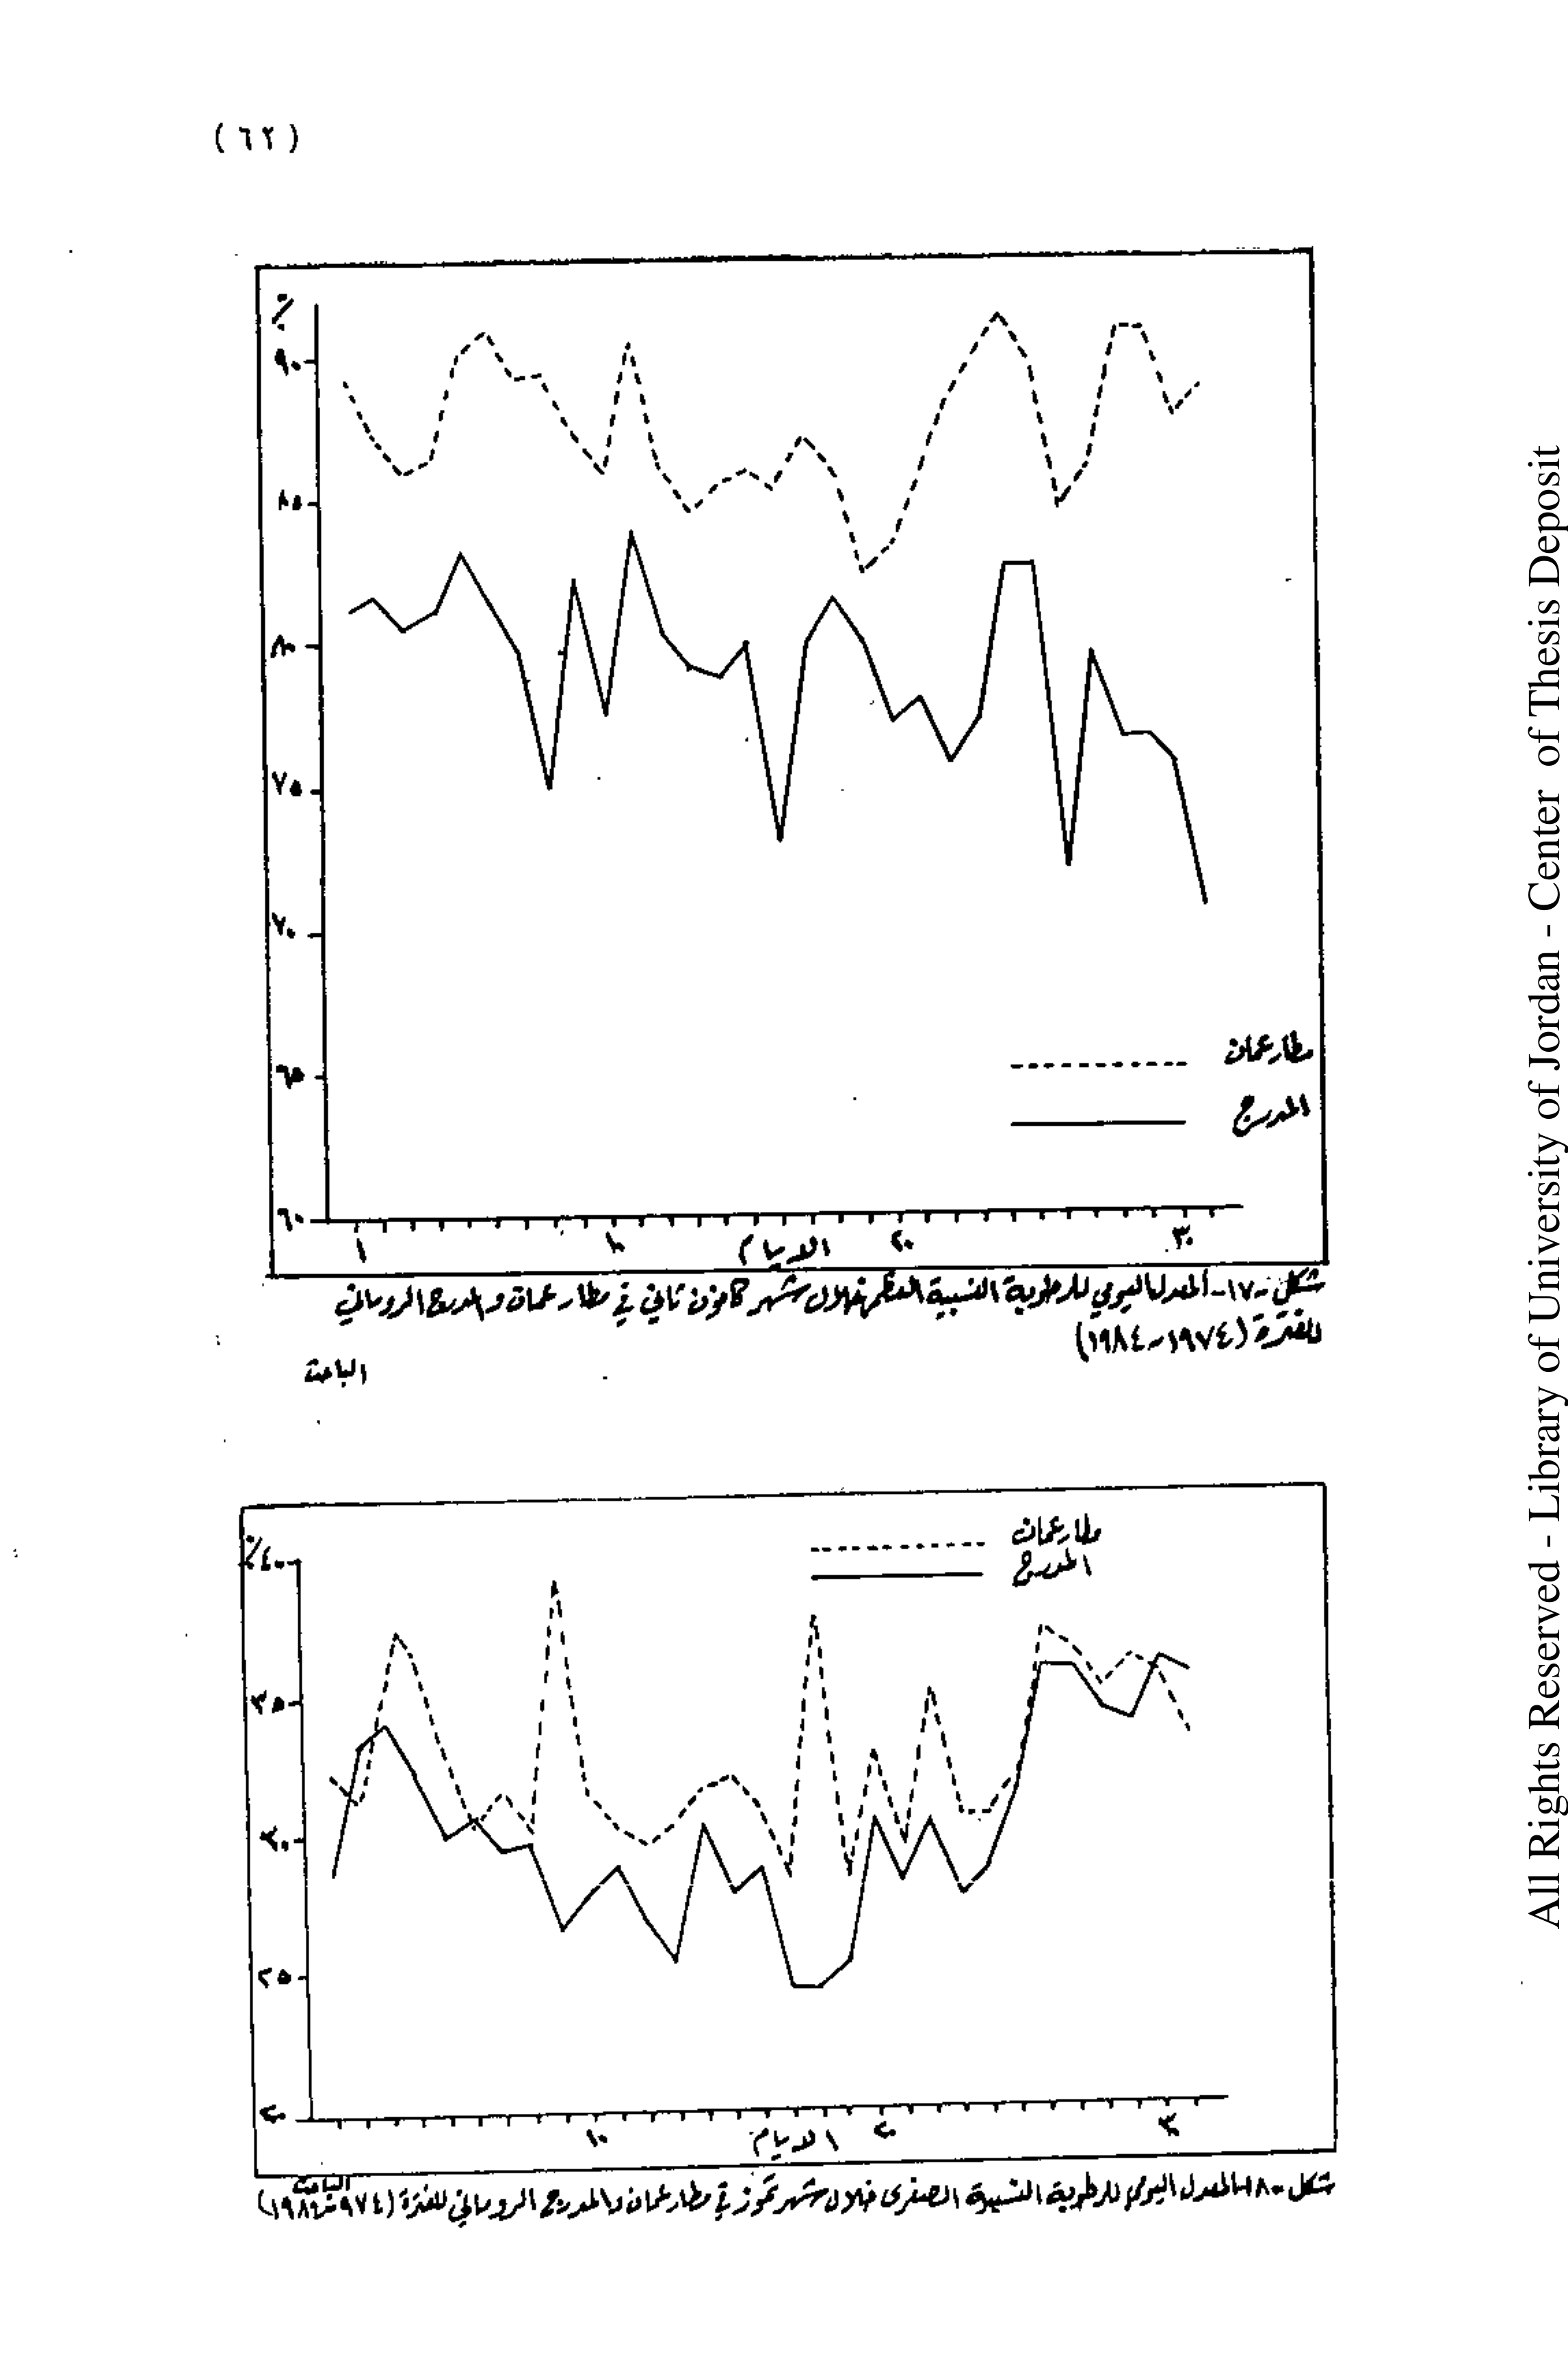 (٦٢)
٪
٩٠
٨٥
٨٠
٧٥
٧٠
٦٥
٦٠
مطار عمان
المدرج
١ ١٠ الايام ٢٠ ٣٠
شكل -١٧- المعدل اليومي للرطوبة النسبية العظمى خلال شهر كانون ثاني في مطار عمان والمدرج الروماني
للفترة (١٩٧٤-١٩٨٤)
الباحث
٪٤٠
٣٥
٣٠
٢٥
٢٠
مطار عمان
المدرج
١٠ الايام ٢٠ ٣٠
شكل -١٨- المعدل اليومي للرطوبة النسبية الصغرى خلال شهر تموز في مطار عمان والمدرج الروماني للفترة
الباحث
All Rights Reserved - Library of University of Jordan - Center of Thesis Deposit